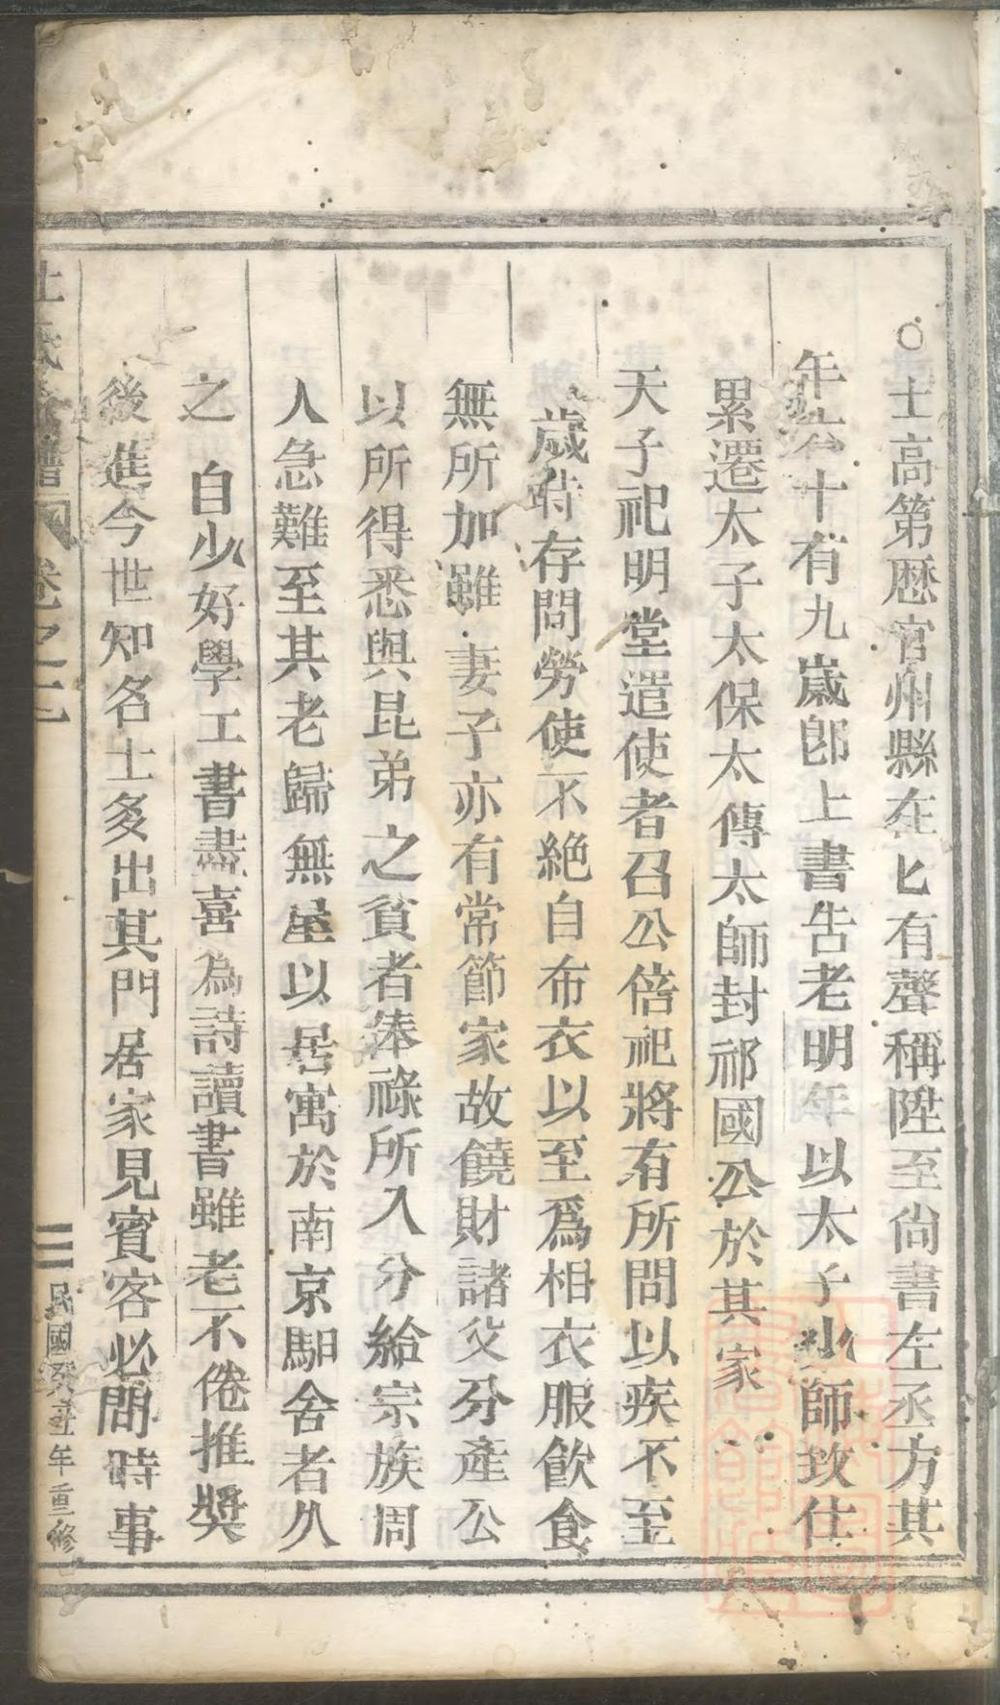 ○士高第歷官州縣在匕有聲稱陞至尙書左丞方其
年六十有九歲卽上書告老明年以太子少師致仕
累遷太子太保太傅太師封祁國公於其家
天子祀明堂遣使者召公倍祀將有所問以疾不至
歲時存問勞使不絕自布衣以至爲相衣服飲食
無所加雖妻子亦有常節家故饒財諸父分產公
以所得悉與昆弟之貧者俸祿所入分給宗族周
人急難至其老歸無屋以居寓於南京馹舍者久
之 自少好學工書畫喜為詩讀書雖老不倦推奬
後進今世知名士多出其門居家見賓客必問時事
卷之
民國癸丑年重修